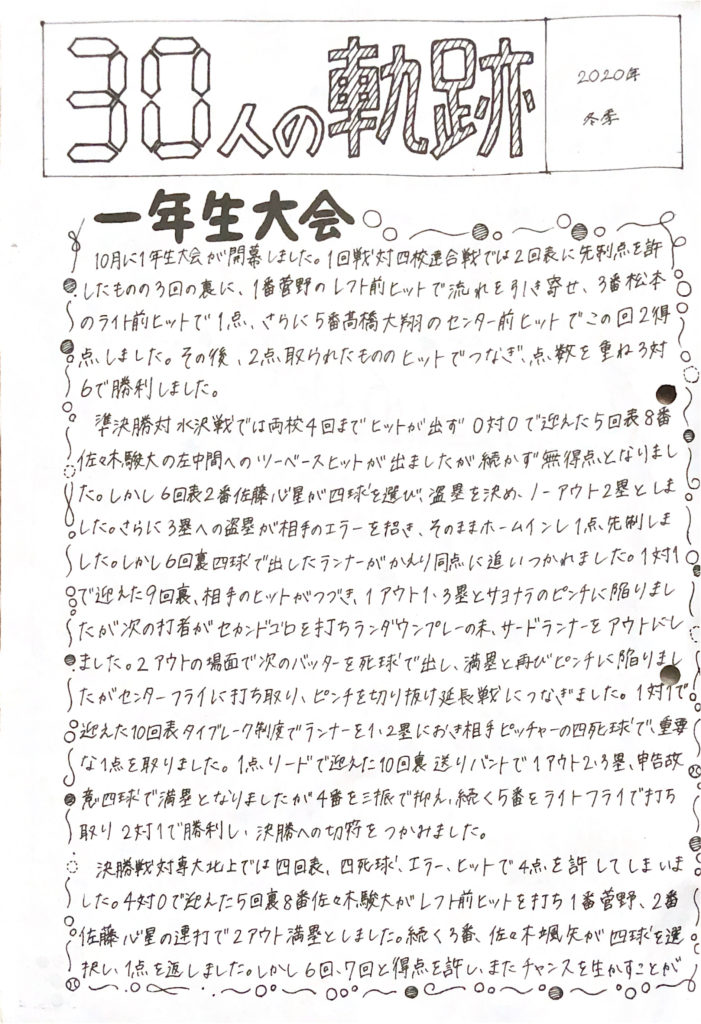 30人の軌跡
2020年
冬季
一年生大会
10月に1年生大会が開幕しました。1回戦対四校連合戦では2回表に先制点を許
したものの3回の裏に、1番菅野のレフト前ヒットで流れを引き寄せ、3番松本
のライト前ヒットで1点、さらに5番高橋大翔のセンター前ヒットでこの回2得
点しました。その後、2点取られたもののヒットでつなぎ、点数を重ね3対
6で勝利しました。
準決勝対水沢戦では両校4回までヒットが出ず0対0で迎えた5回表8番
佐々木駿大の左中間へのツーベースヒットが出ましたが続かず無得点となりまし
た。しかし6回表2番佐藤心星が四球を選び、盗塁を決め、ノーアウト2塁としま
した。さらに3塁への盗塁が相手のエラーを招き、そのままホームインし1点先制しま
した。しかし6回裏四球で出したランナーがかえり同点に追いつかれました。1対1
で迎えた9回裏、相手のヒットがつづき、1アウト1、3塁とサヨナラのピンチに陥りまし
たが次の打者がセカンドゴロを打ちランダウンプレーの末、サードランナーをアウトにし
ました。2アウトの場面で次のバッターを死球で出し、満塁と再びピンチに陥りまし
たがセンターフライに打ち取り、ピンチを切り抜け延長戦につなぎました。1対1で
迎えた10回表タイブレーク制度でランナーを1、2塁におき相手ピッチャーの四死球で、重要
な1点を取りました。1点リードで迎えた10回裏送りバントで1アウト2、3塁、申告故
意四球で満塁となりましたが4番を三振で抑え、続く5番をライトフライで打ち
取り2対1で勝利し、決勝への切符をつかみました。
決勝戦対専大北上では四回表、四死球、エラー、ヒットで4点を許してしまいま
した。4対0で迎えた5回裏8番佐々木駿大がレフト前ヒットを打ち1番菅野、2番
佐藤心星の連打で2アウト満塁としました。続く3番、佐々木颯矢が四球を選
択し、1点を返しました。しかし6回、7回と得点を許し、またチャンスを生かすことが